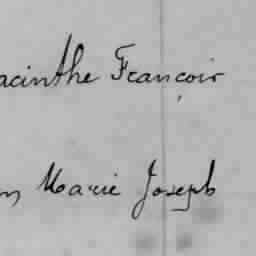 acinthe François
n Marie Joseph